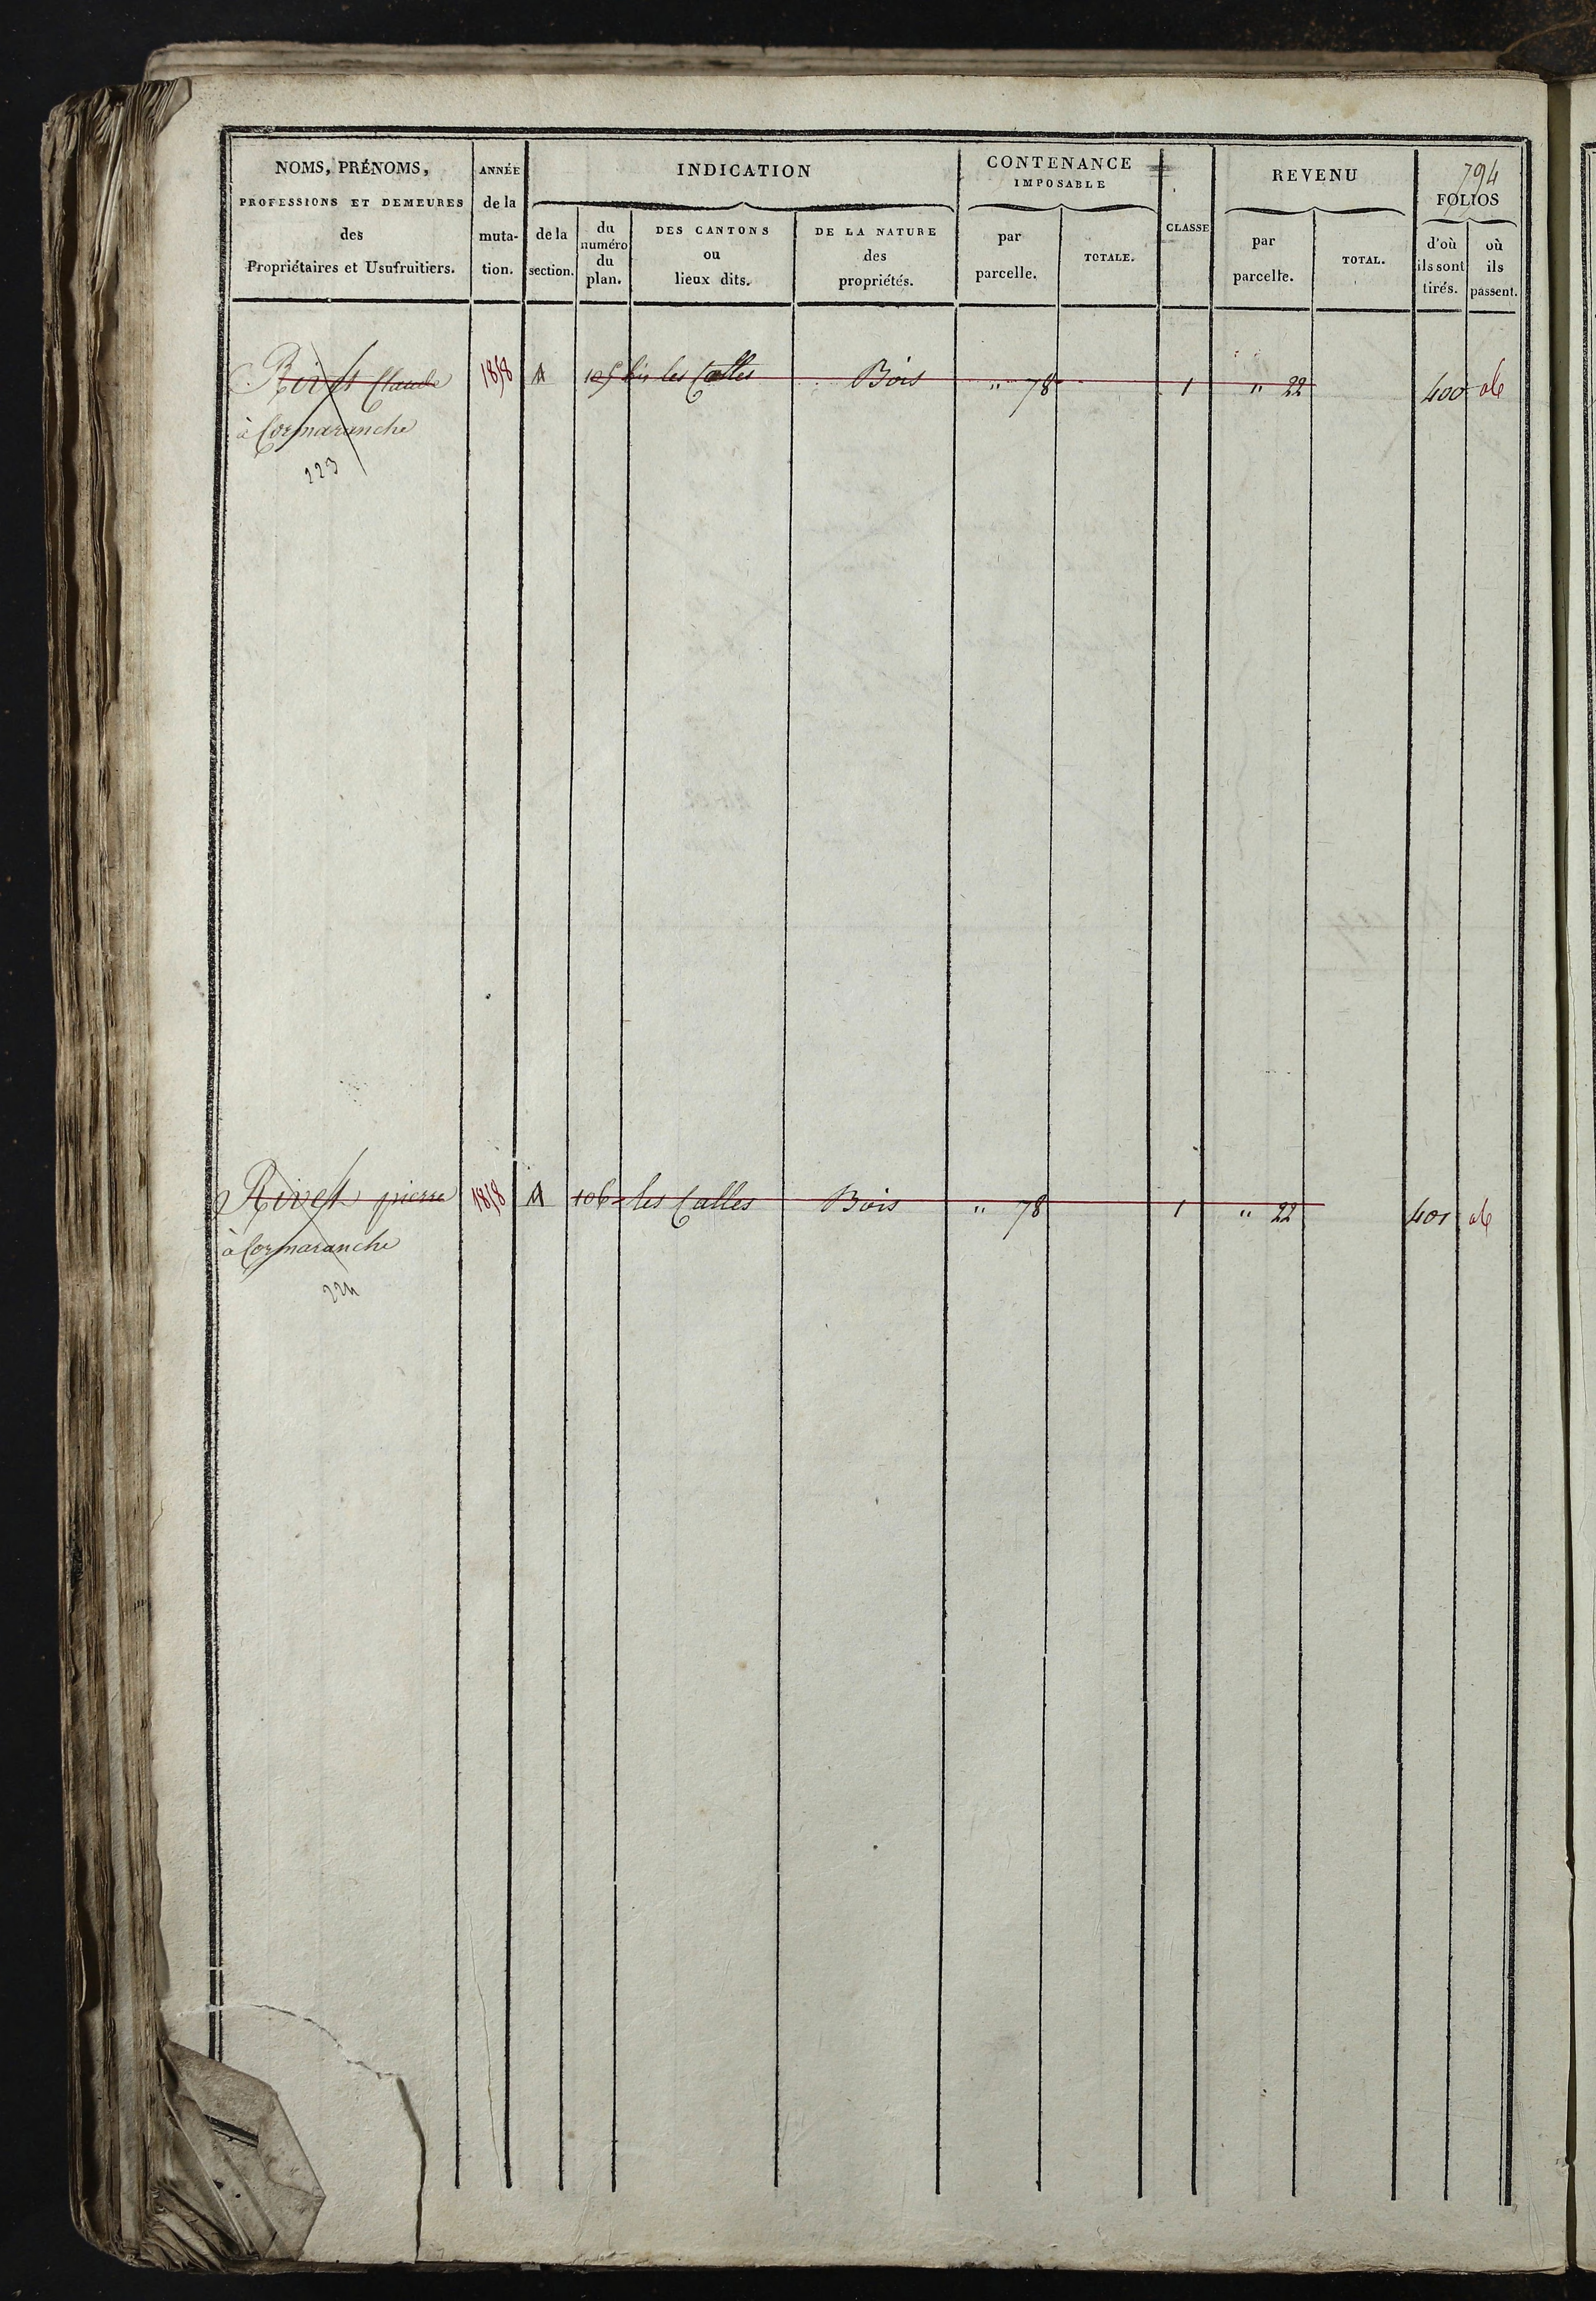 794
NOMS, PRÉNOMS,
PROFESSIONS ET DEMEURES
des
Propriétaires et Usufruitiers.
ANNÉE
de la
muta-
tion.
INDICATION
de la
section.
du
numéro
du
plan.
DES CANTONS
ou
lieux dits.
DE LA NATURE
des
propriétés.
CONTENANCE
IMPOSABLE
par
parcelle.
TOTALE.
CLASSE
REVENU
par
parcelle.
TOTAL.
FOLIOS
d'où
ils sont
tirés.
où
ils
passent.
Rivet Claude 1818 A 105 bis les Calles Bois " 78 1 " 22 400
à Cormaranche
223
Rivet pierre 1818 A 106 les Calles Bois " 78 1 " 22 401
à Cormaranche
224